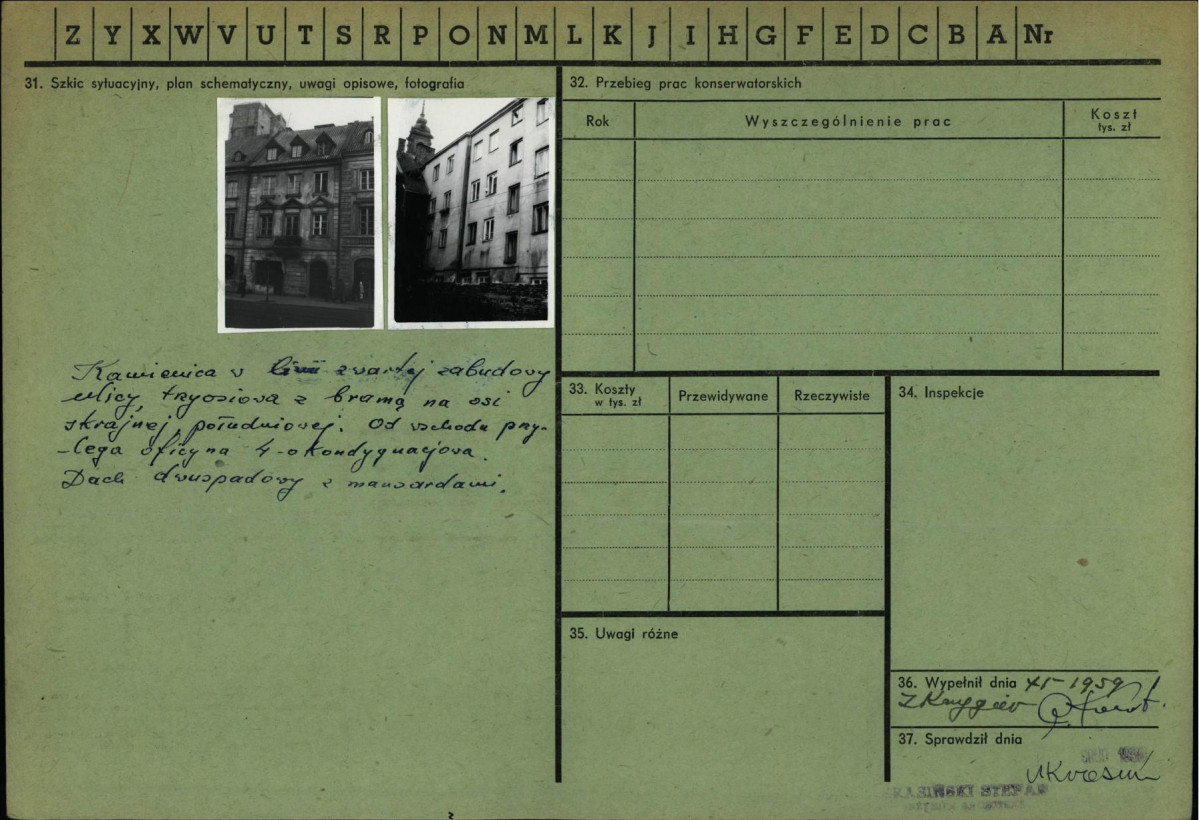 Z Y X W V U T S R P O N M L K J I H G F E D C B A Nr
31. Szkic sytuacyjny, plan schematyczny, uwagi opisowe, fotografia
Kamienica w linii zwartej zabudowy
ulicy, tryosiowa z bramą na osi
skrajnej, południowej. Od wschodu przy-
-lega oficyna 4-o kondygnacjowa.
Dach dwuspadowy z mansardami.
32. Przebieg prac konserwatorskich
Rok
Wyszczególnienie prac
Koszt
tys. zł
33. Koszty
w tys. zł
Przewidywane
Rzeczywiste
34. Inspekcje
35. Uwagi różne
36. Wypełnił dnia XI-1959
37. Sprawdził dnia
STEFAN